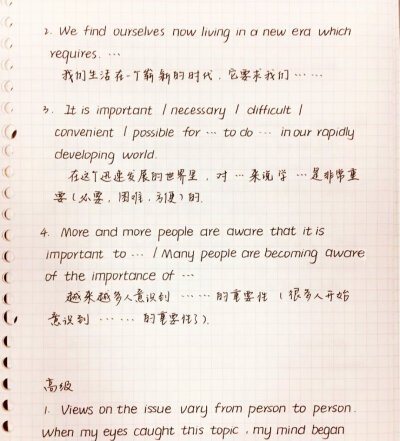 2. We find ourselves now living in a new era which
requires. ...
我们生活在一个崭新的时代，它要求我们 ... ...
3. It is important / necessary / difficult /
convenient / possible for ... to do ... in our rapidly
developing world.
在这个迅速发展的世界里，对 ... 来说学 ... 是非常重
要（必要，困难，方便）的.
4. More and more people are aware that it is
important to ... / Many people are becoming aware
of the importance of ...
越来越多人意识到 ... ... 的重要性（很多人开始
意识到 ... ... 的重要性了).
高级
1. Views on the issue vary from person to person.
When my eyes caught this topic, my mind began